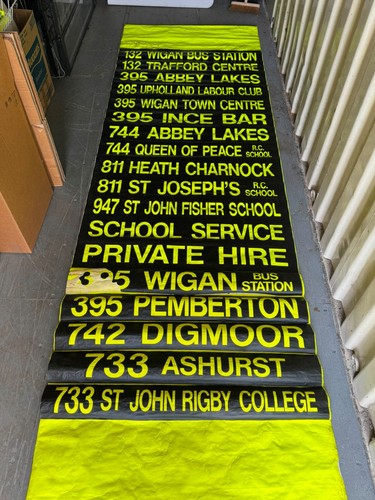 132 WIGAN BUS STATION
132 TRAFFORD CENTRE
395 ABBEY LAKES
395 UPHOLLAND LABOUR CLUB
395 WIGAN TOWN CENTRE
395 INCE BAR
744 ABBEY LAKES
744 QUEEN OF PEACE R.C. SCHOOL
811 HEATH CHARNOCK
811 ST JOSEPH'S R.C. SCHOOL
947 ST JOHN FISHER SCHOOL
SCHOOL SERVICE
PRIVATE HIRE
395 WIGAN BUS STATION
395 PEMBERTON
742 DIGMOOR
733 ASHURST
733 ST JOHN RIGBY COLLEGE